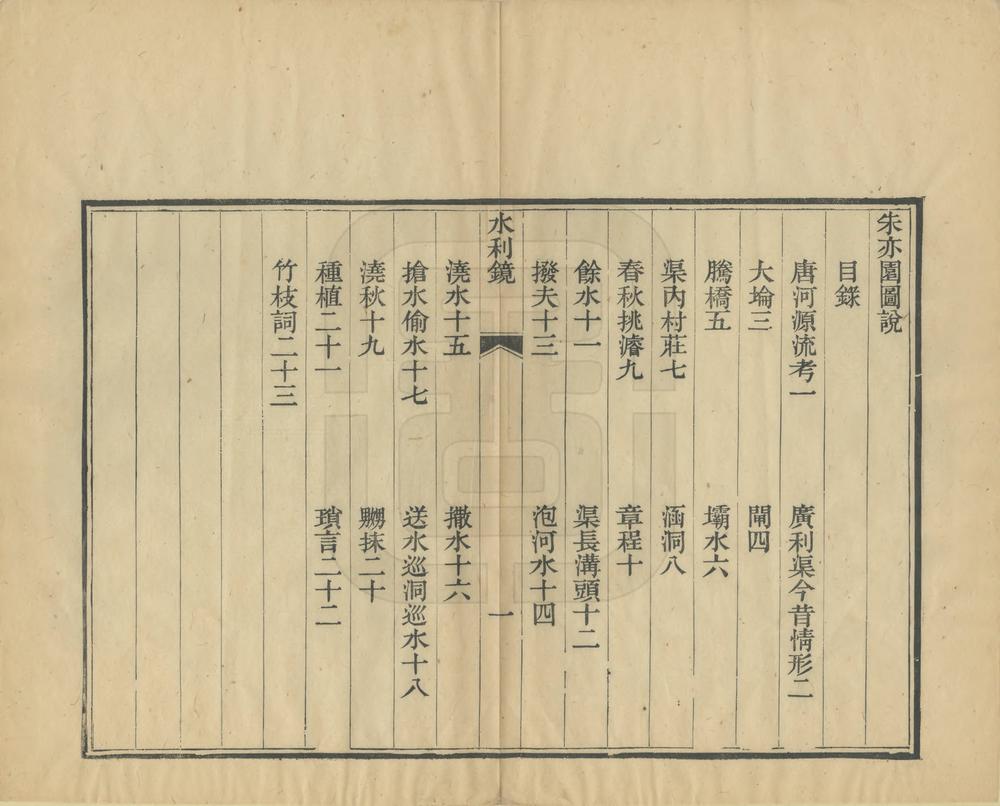 朱亦園圖說
目錄
唐河源流考一　廣利渠今昔情形二
大埨三　閘四
騰橋五　壩水六
渠內村莊七　涵洞八
春秋挑濬九　章程十
餘水十一　渠長溝頭十二
撥夫十三　泡河水十四
水利鏡　一
澆水十五　撒水十六
搶水偷水十七　送水巡洞巡水十八
澆秋十九　嬲抹二十
種植二十一　瑣言二十二
竹枝詞二十三